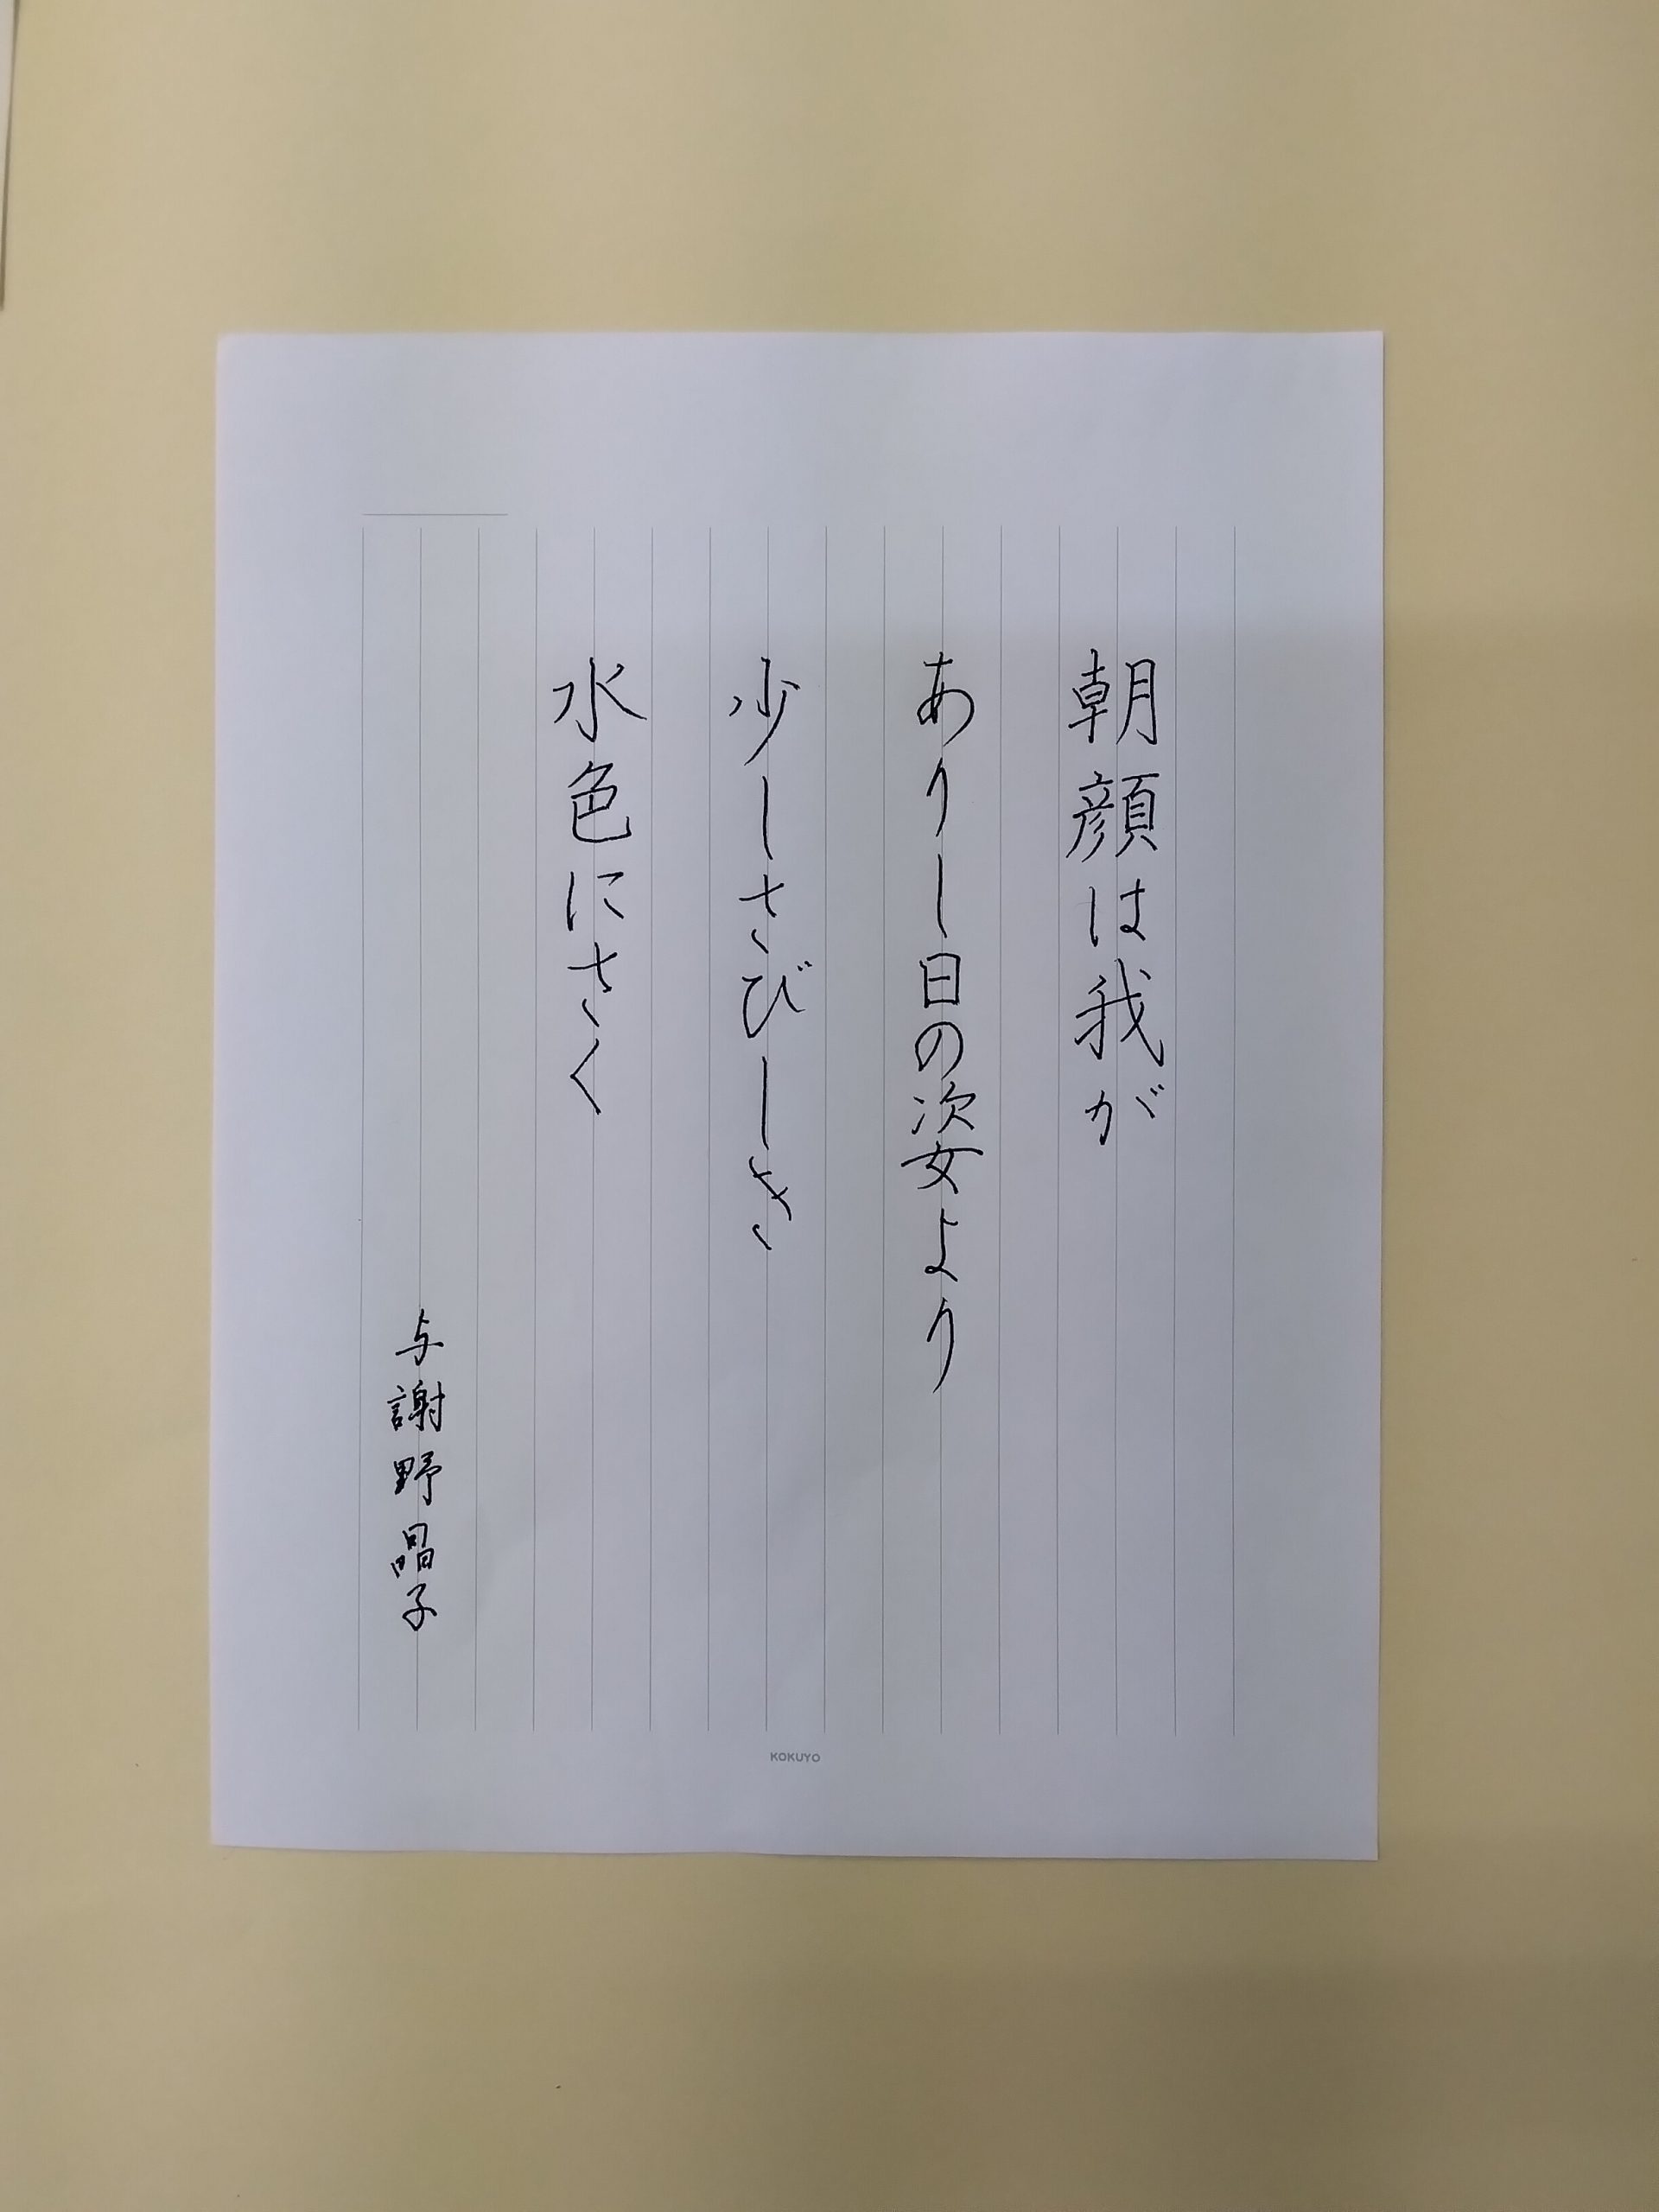 朝顔は我が
ありし日の姿より
少しさびしき
水色にさく
与謝野晶子
KOKUYO